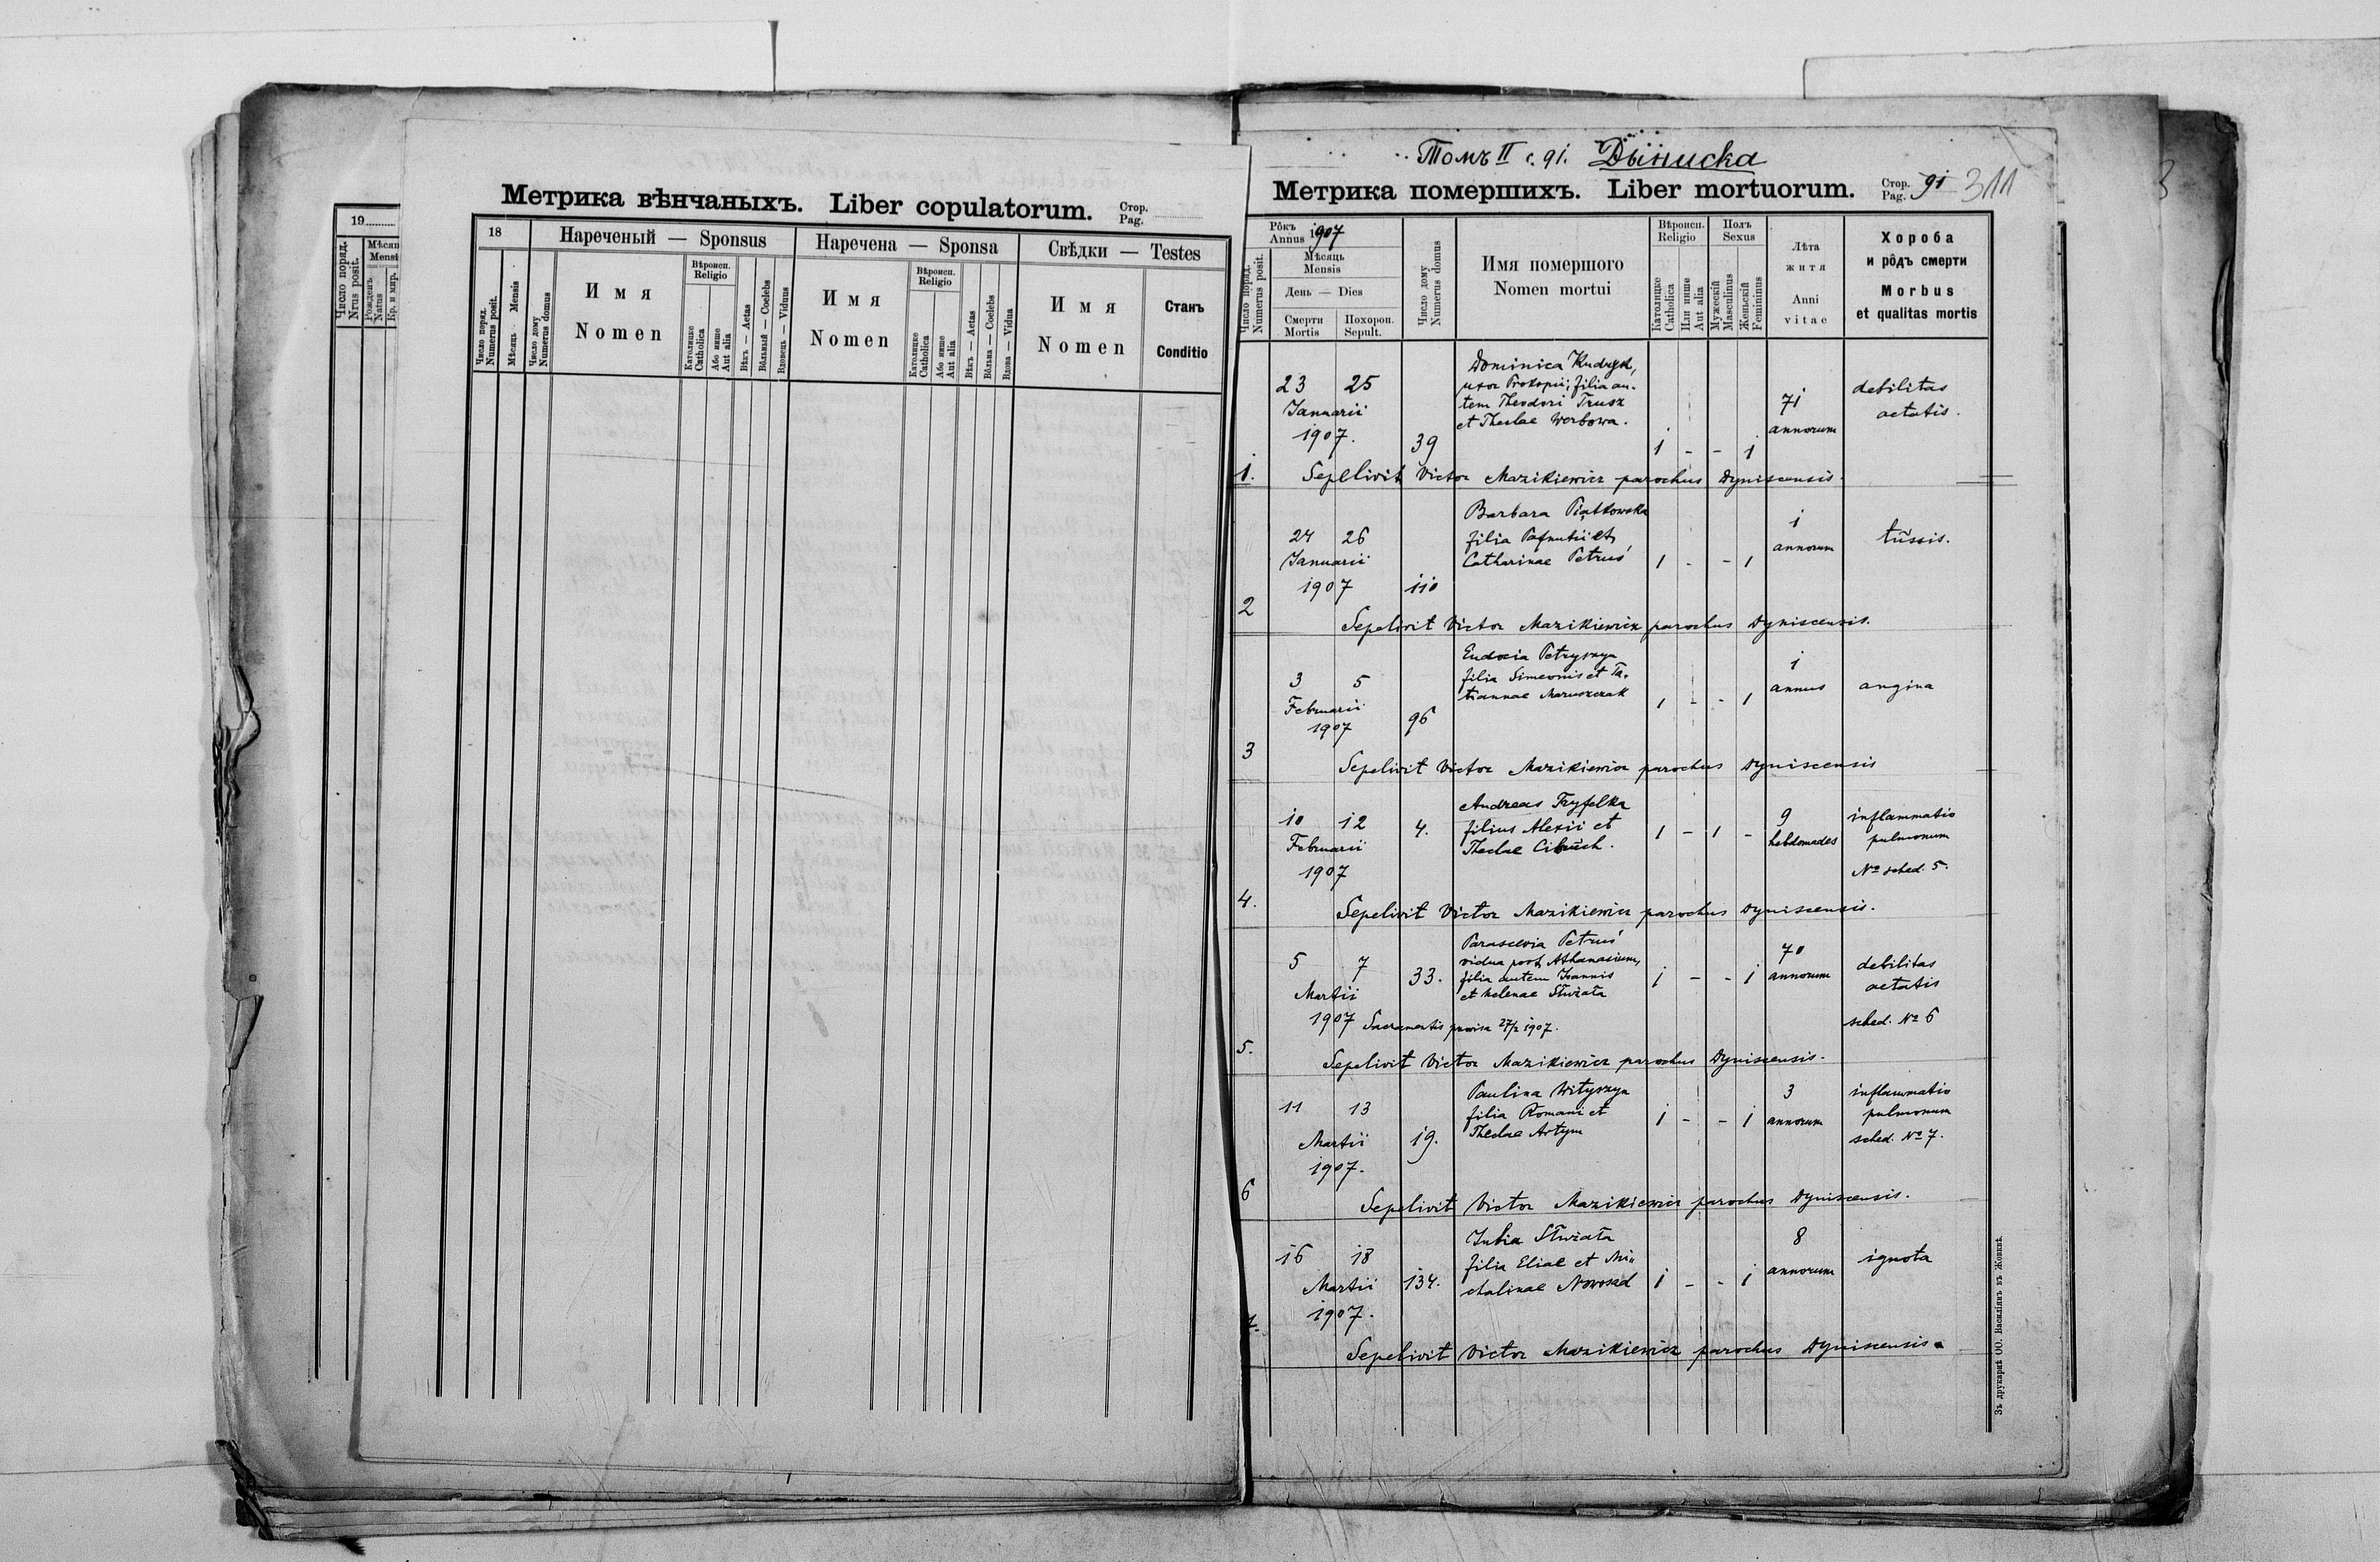 19
Число поряд.
Nrus posit.
Рожденъ
Natus
Кр. и мир.
Метрика вѣнчаныхъ. Liber copulatorum. Стор. Pag.
18
Нареченый — Sponsus
Наречена — Sponsa
Свѣдки — Testes
Число поряд.
Numerus posit.
Мѣсяць Mensis
Число дому
Numerus domus
Имя
Nomen
Вѣроисп.
Religio
Католицке
Catholica
Або инше
Aut alia
Вѣкъ — Aetas
Вôльный — Coelebs
Вдовець — Viduus
Имя
Nomen
Вѣроисп.
Religio
Католицке
Catholica
Або инше
Aut alia
Вѣкъ — Aetas
Вôльна — Coelebs
Вдова — Vidua
Имя
Nomen
Станъ
Conditio
Томъ II с. 91. Дыниска
Метрика помершихъ. Liber mortuorum. Стор. Pag. 91 311
Рôкъ
Annus 1907
Число поряд.
Numerus posit.
Мѣсяць
Mensis
День — Dies
Смерти
Mortis
Похорон.
Sepult.
Число дому
Numerus domus
Имя помершого
Nomen mortui
Вѣроисп.
Religio
Католицке
Catholica
Или инше
Aut alia
Полъ
Sexus
Мужескій
Masculinus
Женьскій
Femininus
Лѣта
житя
Anni
vitae
Хороба
и рôдъ смерти
Morbus
et qualitas mortis
23 25
Januarii
1907. 39
Dominica Kudryk,
uxor Prokopii, filia au-
tem Theodori Trusz
et Theclae Werbowa.
1 - - 1
71
annorum
debilitas
aetatis.
1. Sepelivit Victor Mazikiewicz parochus Dyniscensis.
24 26
Januarii
1907 110
Barbara Piątkowska
filia Pafnutii et
Catharinae Petruś
1 - - 1
1
annorum
tussis.
2
Sepelivit Victor Mazikiewicz parochus Dyniscensis.
3 5
Februarii
1907 96
Eudocia Petryszyn
filia Simeonis et Ta-
tiannae Maruszczak
1 - - 1
1
annus
angina
3
Sepelivit Victor Mazikiewicz parochus Dyniscensis
10 12
Februarii
1907
4.
Andreas Tryfelka
filius Alexii et
Theclae Cibuch.
1 - 1 -
9
hebdomades
inflammatio
pulmonum
No sched. 5.
4.
Sepelivit Victor Mazikiewicz parochus Dyniscensis.
5 7
Martii
1907
33.
Parascevia Petruś
vidua post Athanasium,
filia autem Joannis
et Helenae
1 - - 1
70
annorum
debilitas
aetatis
sched. No 6
Sacramentis provisa 27/2 1907.
5.
Sepelivit Victor Mazikiewicz parochus Dyniscensis.
11 13
Martii
1907.
19.
Paulina Wityszyn
filia Romani et
Theclae Artym
1 - - 1
3
annorum
inflammatio
pulmonum
sched. No 7.
6
Sepelivit Victor Mazikiewicz parochus Dyniscensis.
16 18
Martii
1907.
134.
Julia
filia Eliae et Mi-
chalinae Nowosad
1 - - 1
8
annorum
ignota
7.
Sepelivit Victor Mazikiewicz parochus Dyniscensis.
Зъ друкарнѣ ОО. Василіянъ въ Жовквѣ.